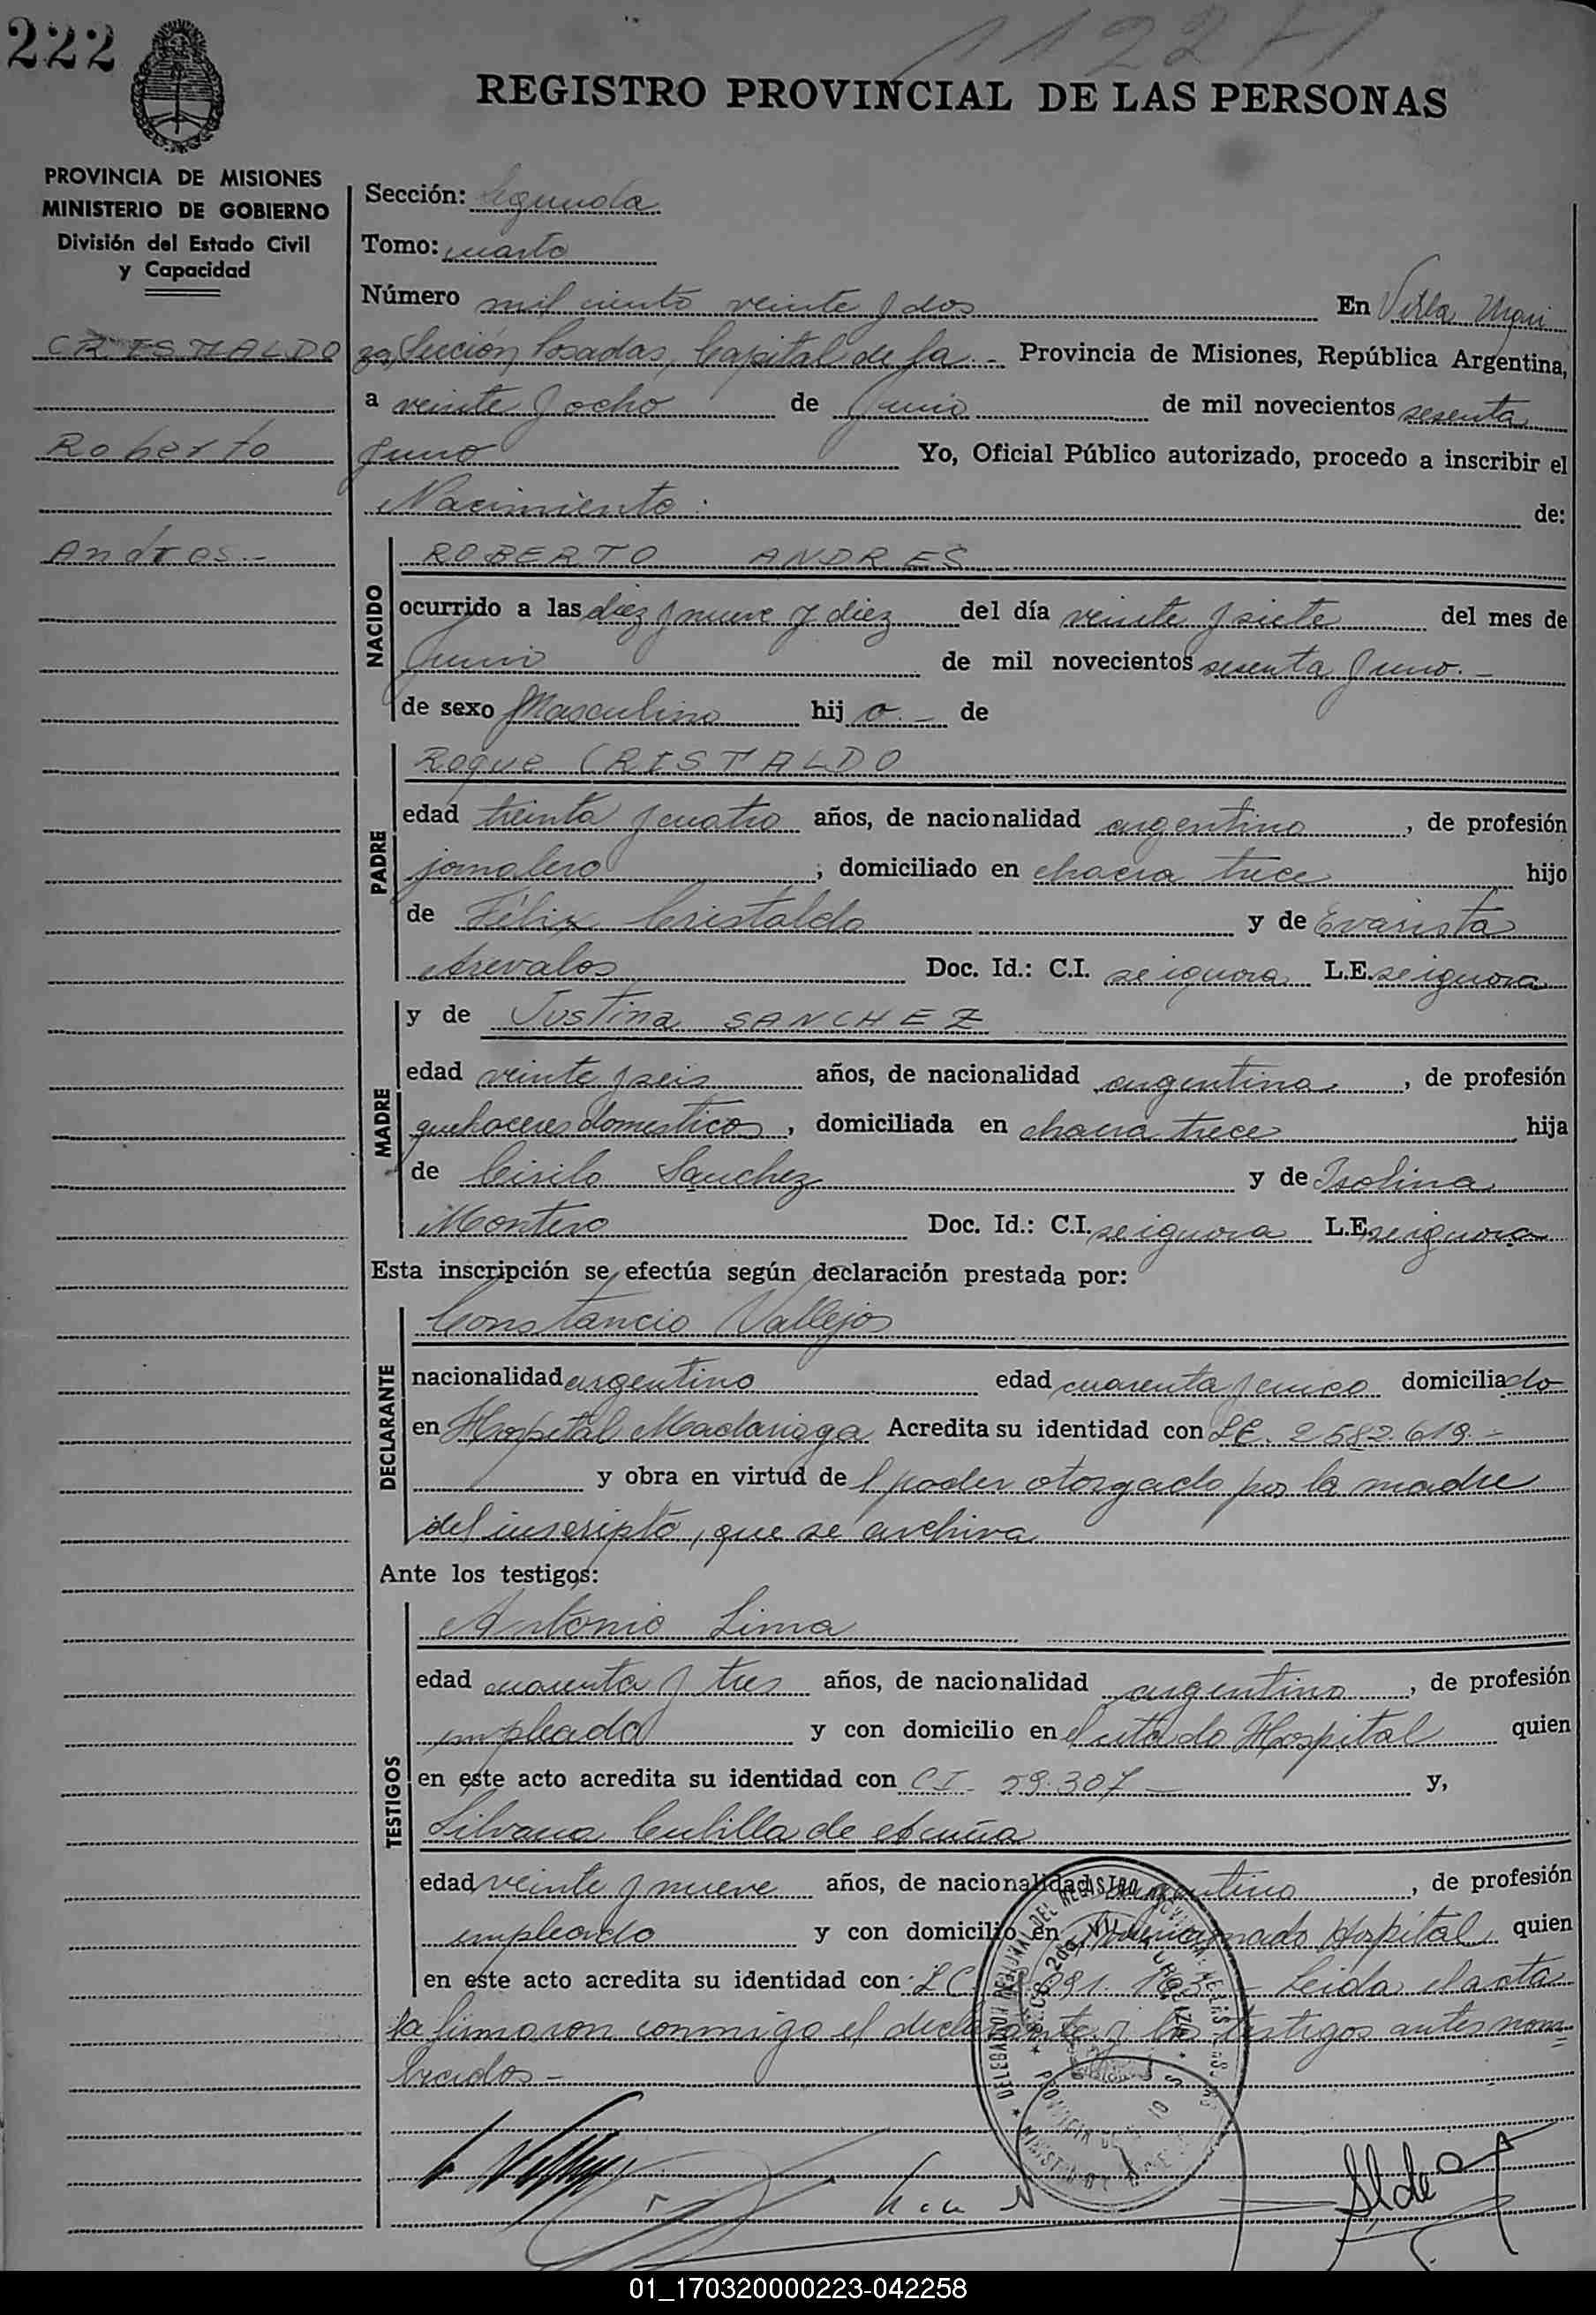 222
REGISTRO PROVINCIAL DE LAS PERSONAS
PROVINCIA DE MISIONES
MINISTERIO DE GOBIERNO
División del Estado Civil
y Capacidad
CRISTALDO
Roberto
Andres.-
Sección: Segunda
Tomo: cuarto
Número mil ciento veinte y dos En Villa Urqui
za, Sección Posadas, Capital de la.- Provincia de Misiones, República Argentina,
a veinte y ocho de Junio de mil novecientos sesenta
y uno Yo, Oficial Público autorizado, procedo a inscribir el
Nacimiento. de:
NACIDO
ROBERTO ANDRES
ocurrido a las diez y nueve y diez del día veinte y siete del mes de
Junio de mil novecientos sesenta y uno.-
de sexo Masculino hij o.- de
PADRE
Roque CRISTALDO
edad treinta y cuatro años, de nacionalidad argentino, de profesión
jornalero; domiciliado en chacra trece hijo
de Félix Cristaldo y de Evarista
Arevalos Doc. Id.: C.I. se ignora L.E. se ignora
MADRE
y de Justina SANCHEZ
edad veinte y seis años, de nacionalidad argentina, de profesión
quehaceres domesticos, domiciliada en chacra trece hija
de Cirilo Sanchez y de Isolina
Montero Doc. Id.: C.I. se ignora L.E. se ignora
Esta inscripción se efectúa según declaración prestada por:
DECLARANTE
Constancio Vallejos
nacionalidad argentino edad cuarenta y cinco domiciliado
en Hospital Madariaga Acredita su identidad con LE. 2582.619.-
y obra en virtud de l poder otorgado por la madre
del inscripto, que se archiva
Ante los testigos:
TESTIGOS
Antonio Lima
edad cuarenta y tres años, de nacionalidad argentino, de profesión
empleado y con domicilio en el citado Hospital quien
en este acto acredita su identidad con CI. 59.307 y,
Silvana de
edad veinte y nueve años, de nacionalidad argentina, de profesión
empleada y con domicilio en el mencionado Hospital quien
en este acto acredita su identidad con LC. Leida el acta
la firmaron conmigo el declarante y los testigos antes nom-
brados-
01_170320000223-042258